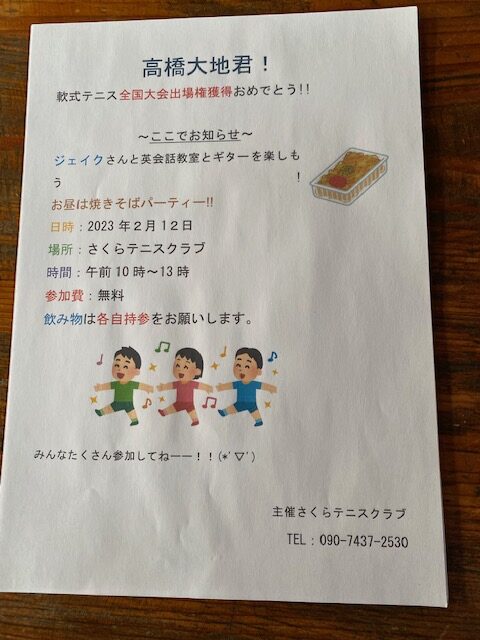 高橋大地君！
軟式テニス全国大会出場権獲得おめでとう!!
～ここでお知らせ～
ジェイクさんと英会話教室とギターを楽しもう！
お昼は焼きそばパーティー!!
日時：2023年２月１２日
場所：さくらテニスクラブ
時間：午前10時～13時
参加費：無料
飲み物は各自持参をお願いします。
みんなたくさん参加してねーー！！(*'▽')
主催さくらテニスクラブ
TEL：090-7437-2530